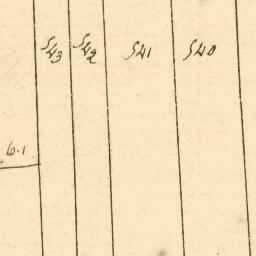 543 542 541 540
6.1